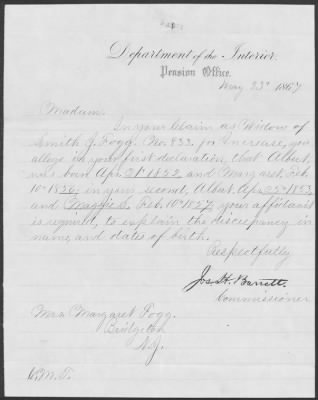 Department of the Interior,
Pension Office,
May 23d 1867
Madam.
In your Claim as Widow of
Smith J. Fogg. No. 833. for Increase, you
allege in your first declaration, that Albert
was born Apr. 21st 1852, and Margaret, Feb.
10th 1856, in your second, Albert, Apr. 25th 1853
and Maggie S. Feb. 10th 1857, your affidavit
is required, to explain the discrepancy in
name, and dates of birth.
Respectfully
Jos. H. Barrett.
Commissioner
Mrs. Margaret Fogg.
Bridgeton
N.J.